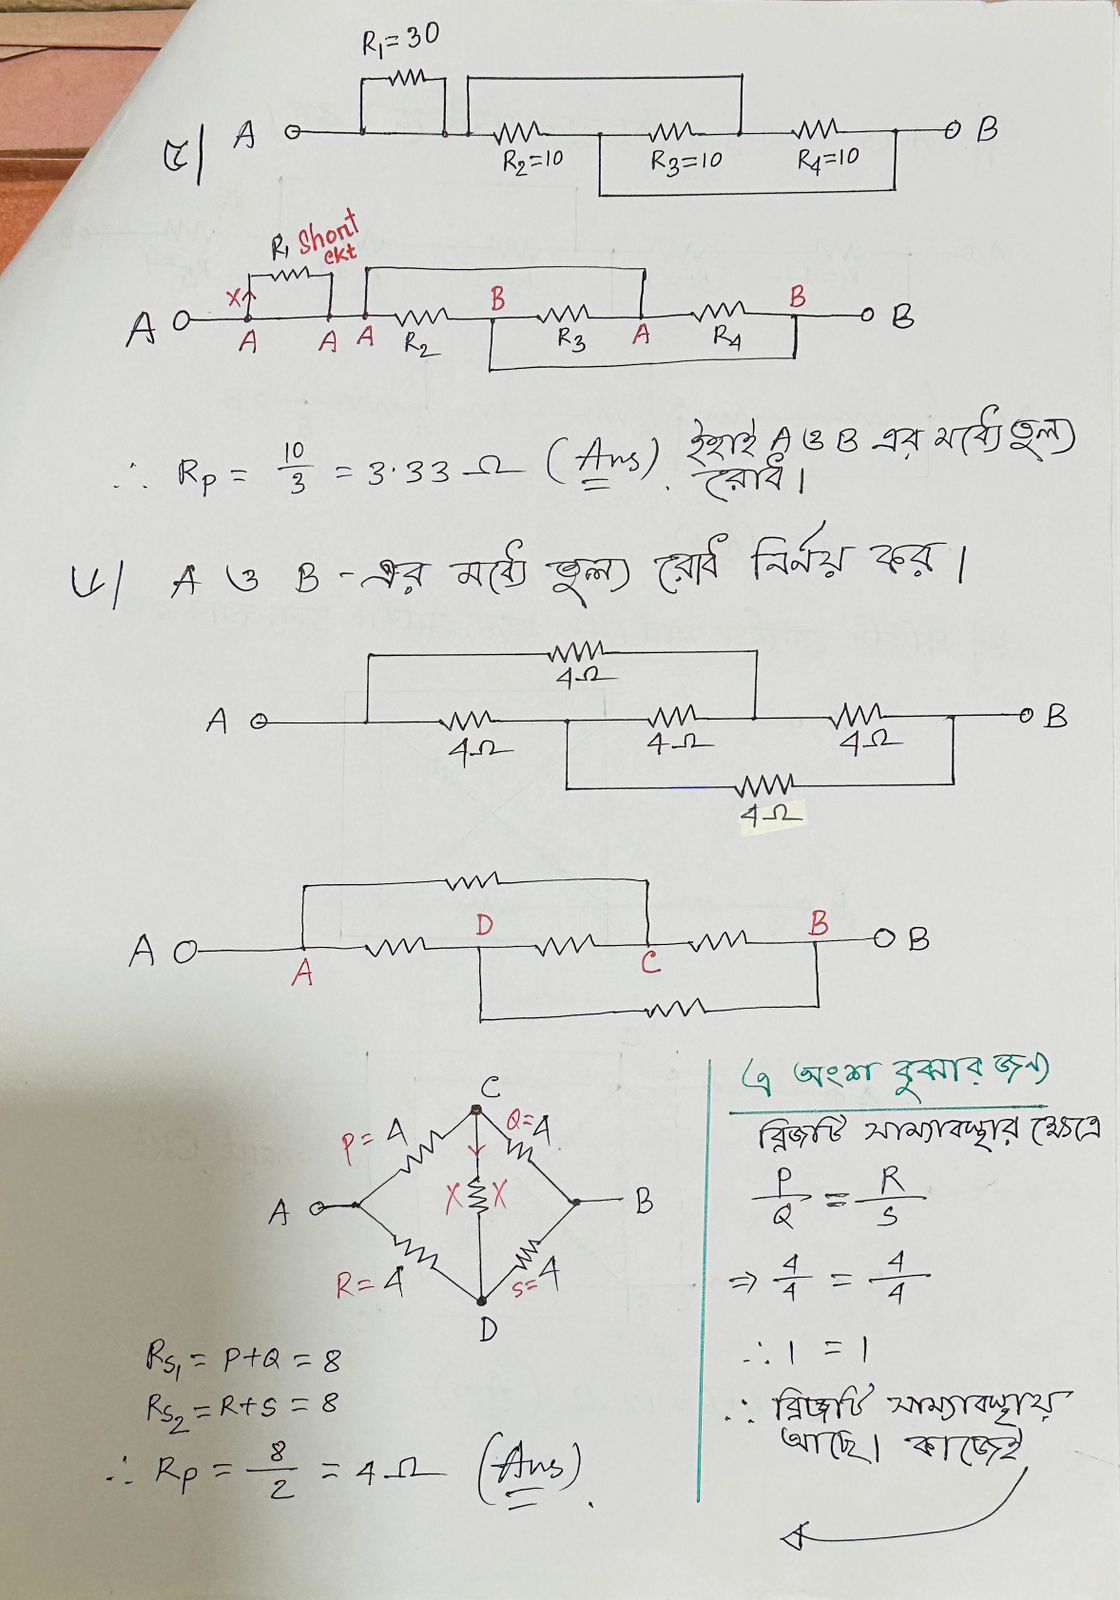 R₁=30
চ| A B
R₂=10 R₃=10 R₄=10
R₁ Short
ckt
X B B
A B
A A A R₂ R₃ A R₄
∴ Rp = 10/3 = 3.33 Ω (Ans). ইহাই A ও B এর মধ্যে তুল্য
রোধ।
৮| A ও B -এর মধ্যে তুল্য রোধ নির্নয় কর।
4Ω
A B
4Ω 4Ω 4Ω
4Ω
D B
A B
A C
C
P= 4 Q=4
A X X B
R= 4 S=4
D
Rs₁ = P+Q = 8
Rs₂ = R+S = 8
∴ Rp = 8/2 = 4Ω (Ans).
এ অংশ বুঝার জন্য
ব্রিজটি সাম্যাবস্থার ক্ষেত্রে
P/Q = R/S
⇒ 4/4 = 4/4
∴ 1 = 1
∴ ব্রিজটি সাম্যাবস্থায়
আছে। কাজেই